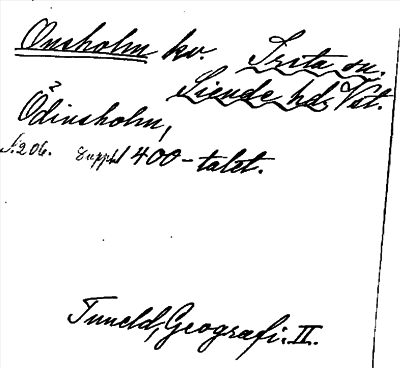 Onsholm kv. Irsta sn.
Siende hds Vst.
Ödinsholm,
s. 206. Suppl. 400-talet.
Tuneld, Geografi. II.